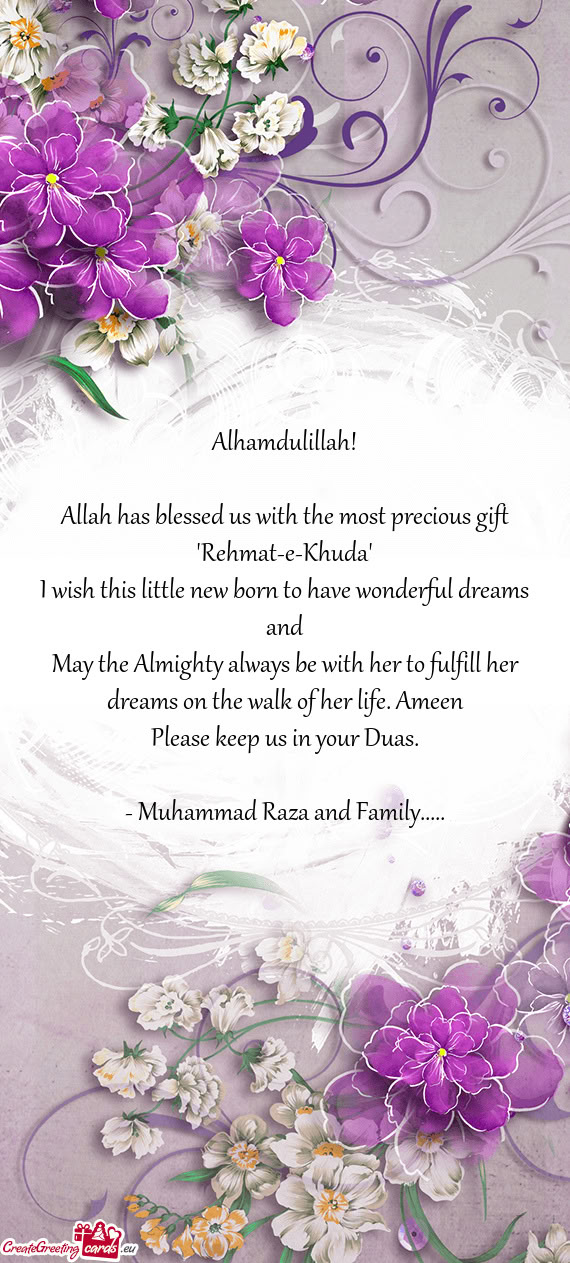 Alhamdulillah!
Allah has blessed us with the most precious gift
'Rehmat-e-Khuda'
I wish this little new born to have wonderful dreams
and
May the Almighty always be with her to fulfill her
dreams on the walk of her life. Ameen
Please keep us in your Duas.
- Muhammad Raza and Family.....
CreateGreeting cards .eu